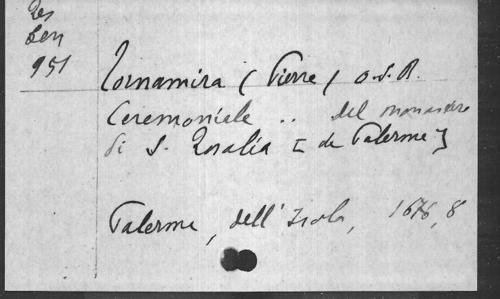 Res
Ben
951
Tornamira (Pierre) O.S.B.
Ceremoniale .. del monastero
di S. Rosalia [de Palerme]
Palerme, dell' Isola, 1676, 8